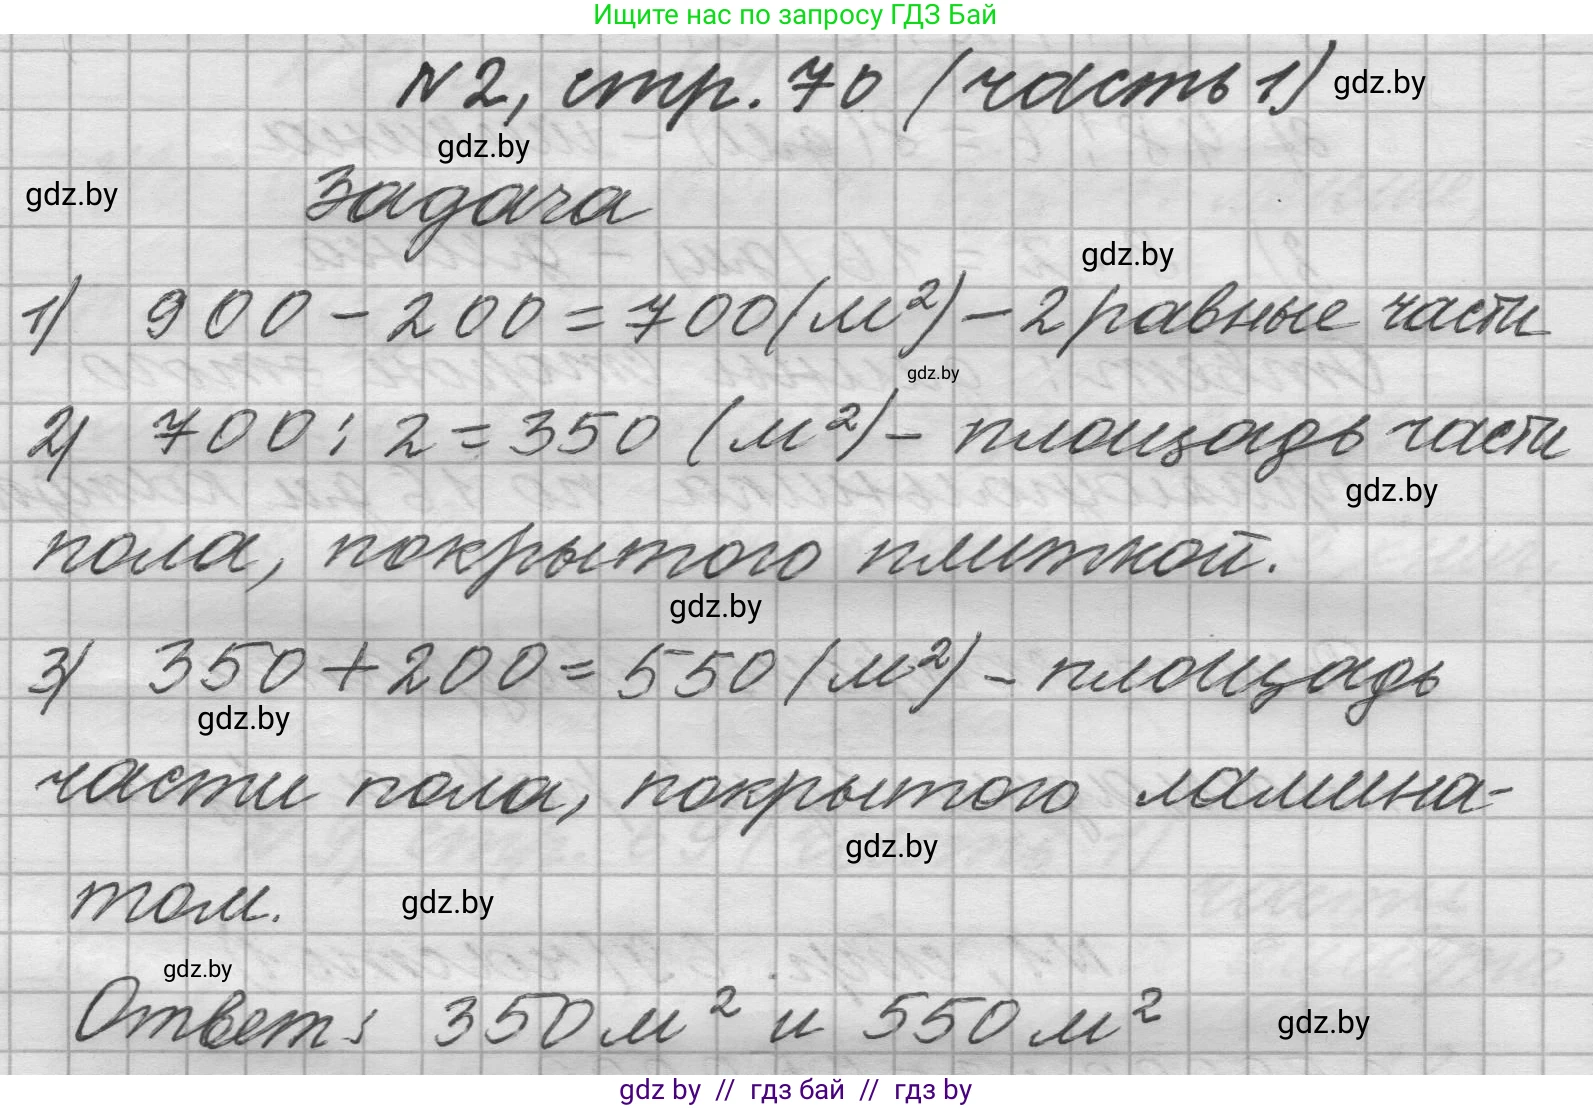 Ищите нас по запросу ГДЗ Бай
N2, стр. 70 (часть 1) gdz.by
gdz.by
gdz.by Задача
gdz.by
1) 900 - 200 = 700 (м²) - 2 равные части
gdz.by
2) 700 : 2 = 350 (м²) - площадь части
gdz.by
пола, покрытого плиткой.
gdz.by
3) 350 + 200 = 550 (м²) - площадь
gdz.by
части пола, покрытого ламина-
gdz.by
том. gdz.by
gdz.by
Ответ: 350 м² и 550 м² gdz.by
gdz by // гдз бай // гдз by